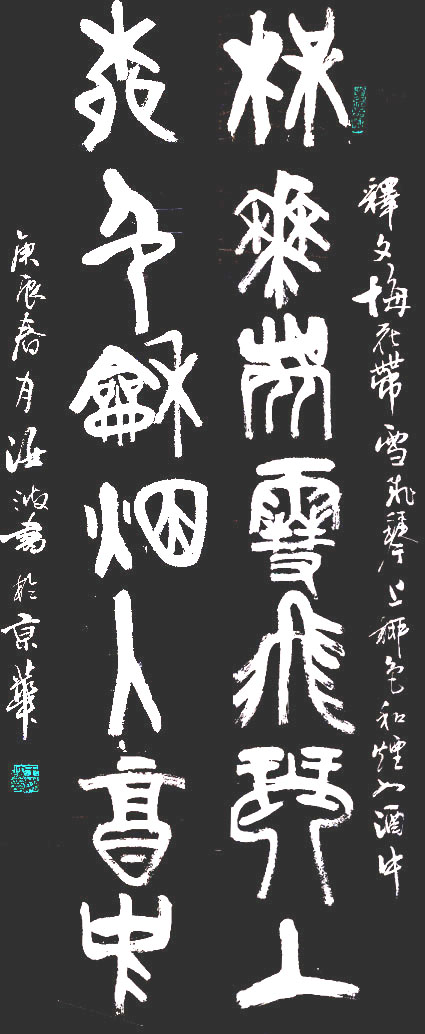 釋文梅花帶雪飛琴上柳色和煙入酒中
梅花帶雪飛琴上
柳色龢烟入酒中
庚辰春月海波書於京華